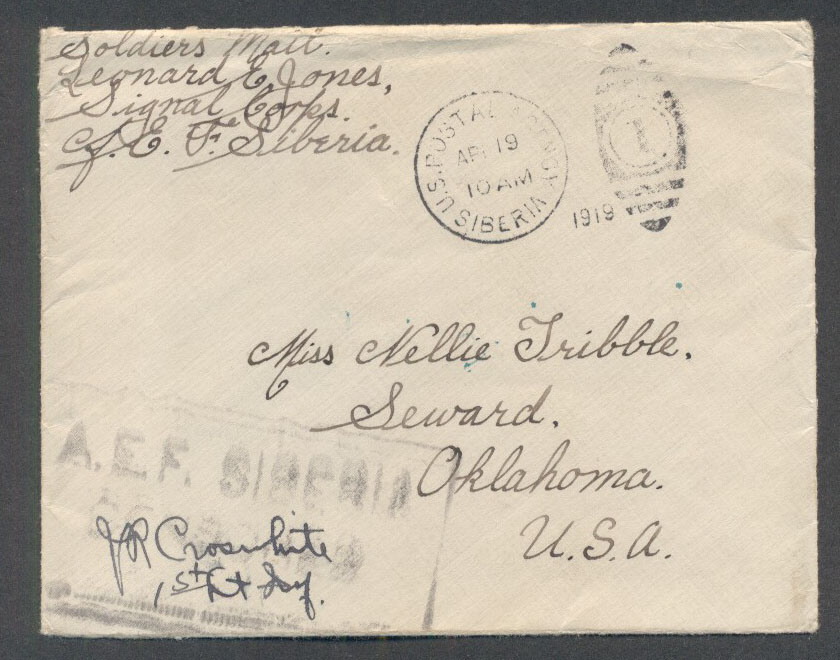 Soldiers Mail.
Leonard E. Jones,
Signal Corps.
A. E. F. Siberia.
U.S. POSTAL AGENCY
AP 19
10 AM
SIBERIA
1919
1
Miss Nellie Tribble.
Seward.
Oklahoma.
U.S.A.
A.E.F. SIBERIA
JR Croswhite
1st Lt Inf.